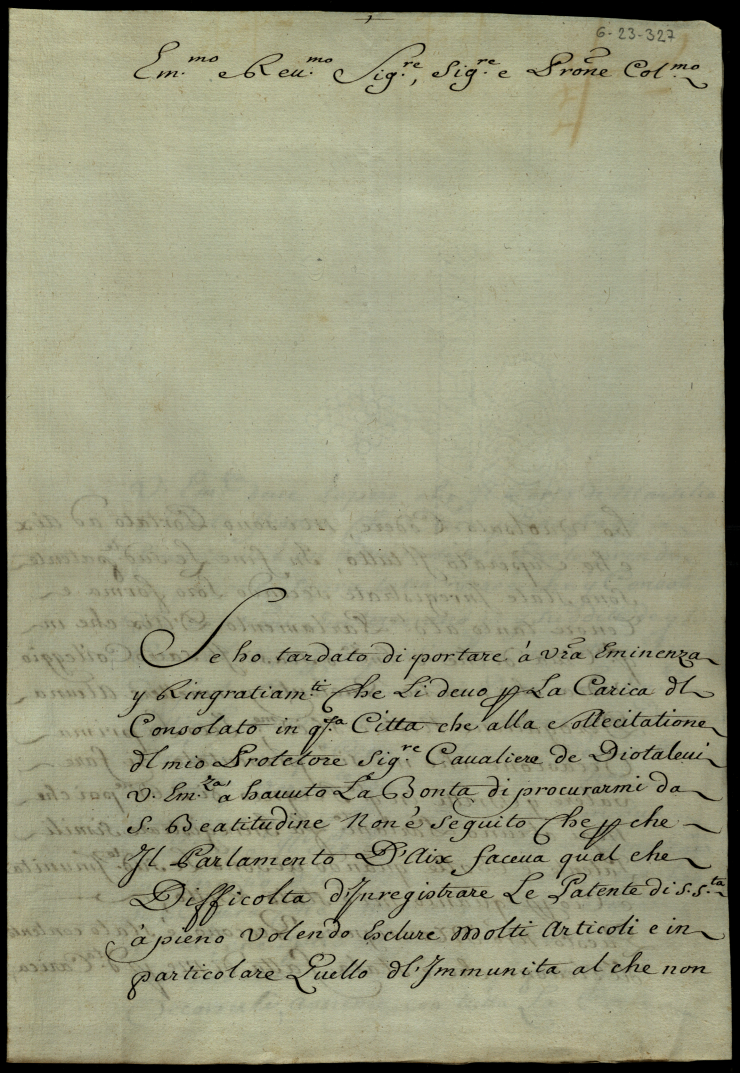 6-23-327
Em.mo e Reu.mo Sig.re, Sig.re e Prone Col.mo
Se ho tardato di portare à vra Eminenza
y Ringratiam.ti Che Li deuo p La Carica dl
Consolato in q.sta Citta che alla Sollecitatione
dl mio Protetore Sig.re Caualiere de Diotaleui
v. Em.za à hauuto La Bonta di procurarmi da
S. Beatitudine Non è Seguito Che p che
Il Parlamento D'Aix faceua qual che
Difficolta d'Inregistrare Le Patente di S. S.ta
à pieno volendo Esclure molti Articoli e in
particolare Quello dl'Immunita al che non